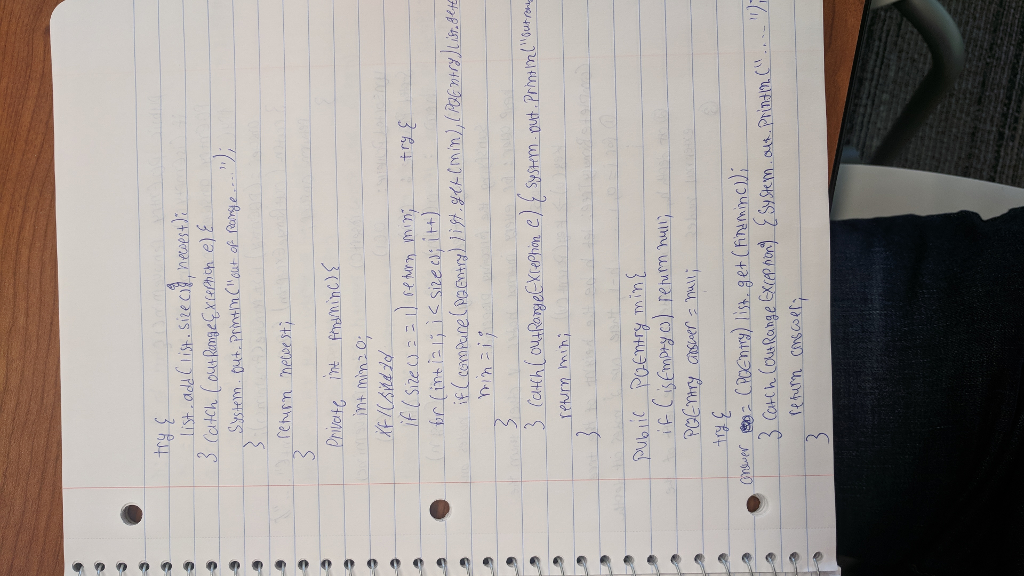 try {
list.add(list.size(), newest);
} catch (outRangeException e) {
System.out.println("out of range....");
}
return newest;
}
private int findmin() {
int min=0;
if (size() == 1) return min; try {
for (int i=1; i<size(); i++)
if (compare((PQEntry)list.get(min),(PQEntry)list.get(
min=i;
}
} catch (outRangeException e) { System.out.println("outran
return min;
}
public PQEntry min {
if (isEmpty()) return null;
PQEntry answer = null;
try {
answer = (PQEntry) list.get(findmin());
} catch (outRangeException) { System.out.println(".....");
return answer;
}